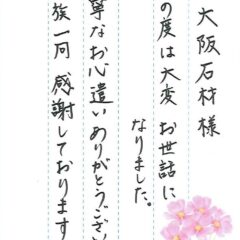 大阪石材様
の度は大変 お世話に
なりました。
寧なお心遣いありがとうござい
族一同 感謝しております